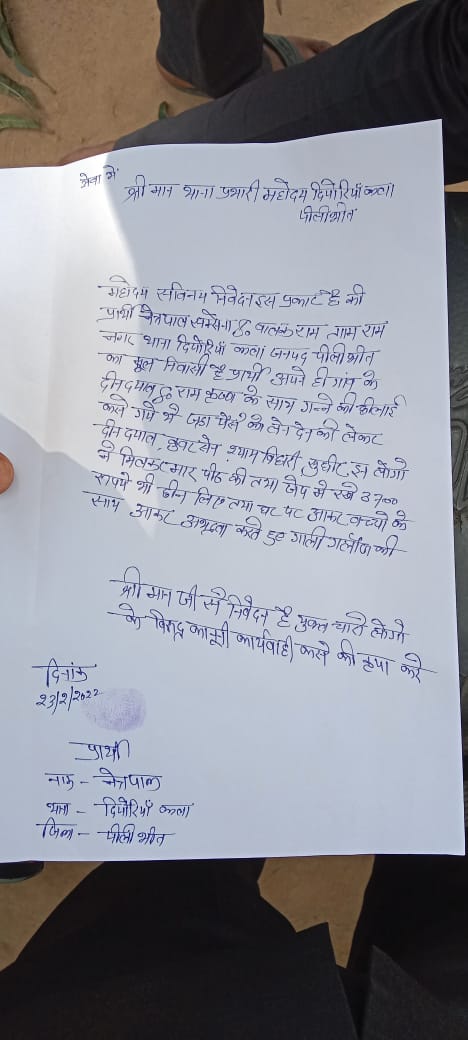 सेवा में
श्री मान थाना प्रभारी महोदय दियोरियाँ कला
पीलीभीत
महोदय सविनय निवेदन इस प्रकार है की
प्रार्थी चेत्रपाल सक्सेना S/o बालक राम ग्राम राम
नगर थाना दियोरियाँ कलां जनपद पीलीभीत
का मूल निवासी है प्रार्थी अपने ही गांव के
दीनदयाल S/o राम कृष्ण के साथ गन्ने की छीलाई
करने गये थे जहा पैसे के लेन देन को लेकर
दीन दयाल, श्याम बिहारी, सुधीर, इन लोगो
ने मिलकर मार पीठ की तथा जेब में रखे 3700
रूपये भी छीन लिए तथा घर पर आकर बच्चो के
साथ आकर अभद्रता करते हुए गाली गलौज की
श्री मान जी से निवेदन है युक्त चारो लोगो
के विरुद्ध कानूनी कार्यवाही करने की कृपा करे
दिनांक
23/2/2022
प्रार्थी
नाम - चेत्रपाल
थाना - दियोरियाँ कलां
जिला - पीलीभीत